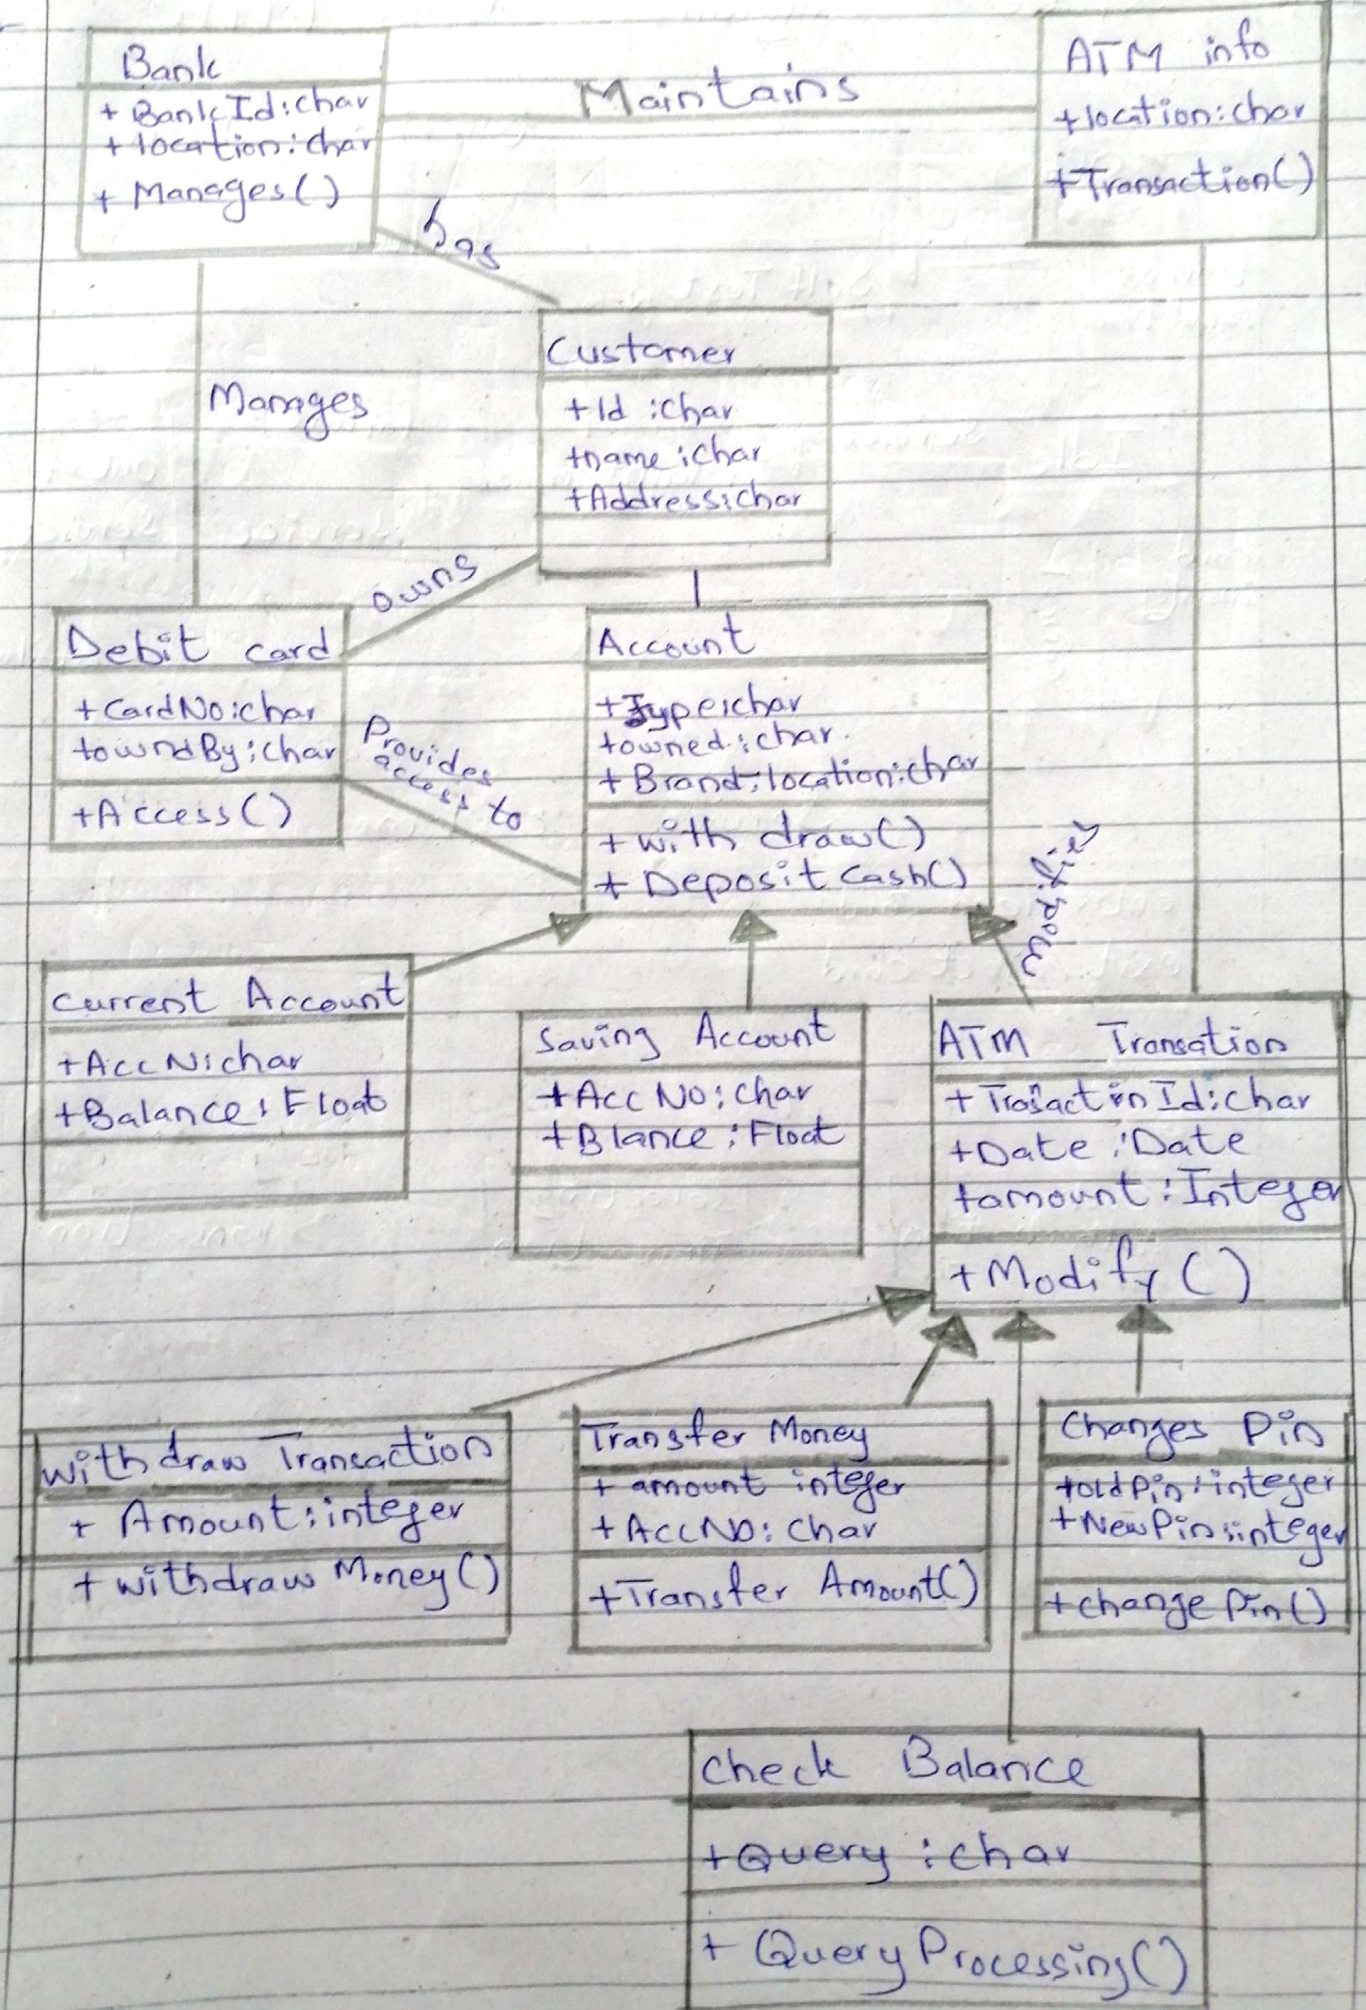 Bank
+ BankId:char
+ location:char
+ Manages()
Maintains
ATM info
+location:char
+Transaction()
has
Manages
Customer
+Id :char
+name:char
+Address:char
owns
Debit card
+CardNo:char
+owndBy:char
+Access()
Provides
access to
Account
+Type:char
+owned:char.
+ Brand,location:char
+ with draw()
+ Deposit Cash()
Modifies
Current Account
+Acc N:char
+Balance: Float
Saving Account
+Acc No:char
+Blance:Float
ATM Transation
+ TrasactinId:char
+Date :Date
+amount:Integer
+Modify()
withdraw Transaction
+ Amount:integer
+ withdraw Money()
Transfer Money
+ amount integer
+AccNo: char
+Transfer Amount()
Changes Pin
+oldPin:integer
+NewPin:integer
+change Pin()
Check Balance
+Query :char
+ Query Processing()